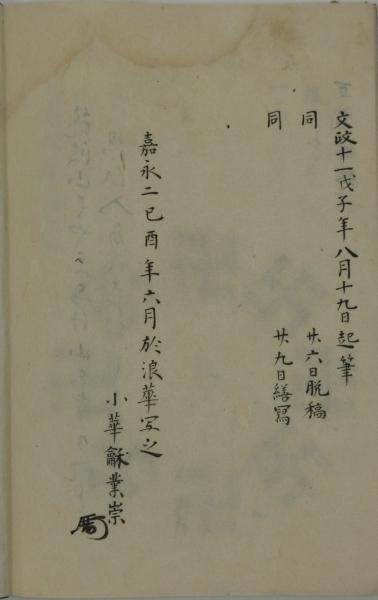 文政十一戊子年八月十九日起筆
同　廿六日脱稿
同　廿九日繕寫
嘉永二己酉年六月於浪華写之
小華龢業崇